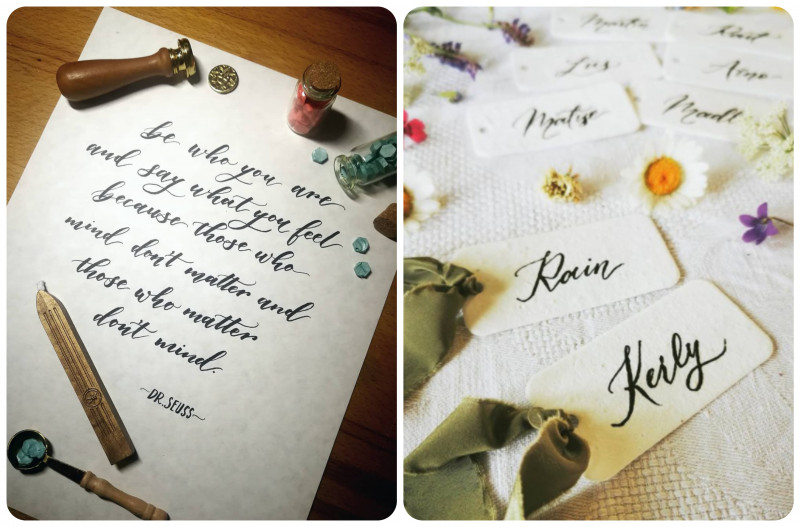 be who you are
and say what you feel
because those who
mind don't matter and
those who matter
don't mind.
~DR. SEUSS~
Matise
Rain
Kerly